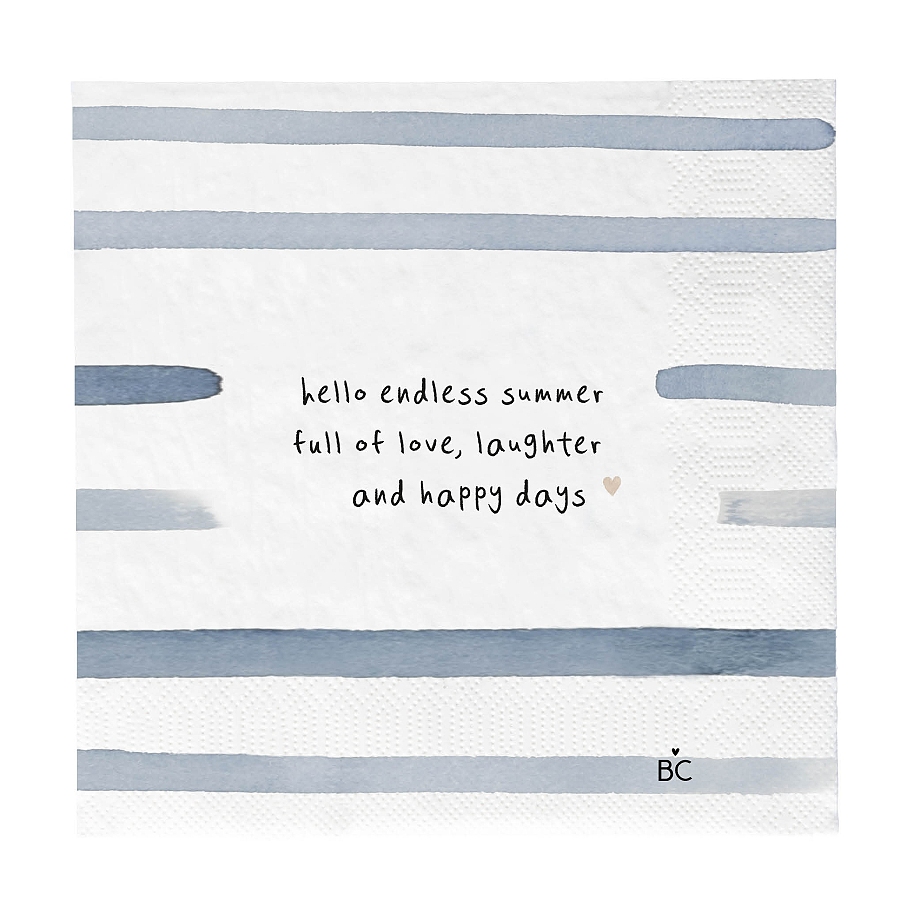 hello endless summer
full of love, laughter
and happy days
BC